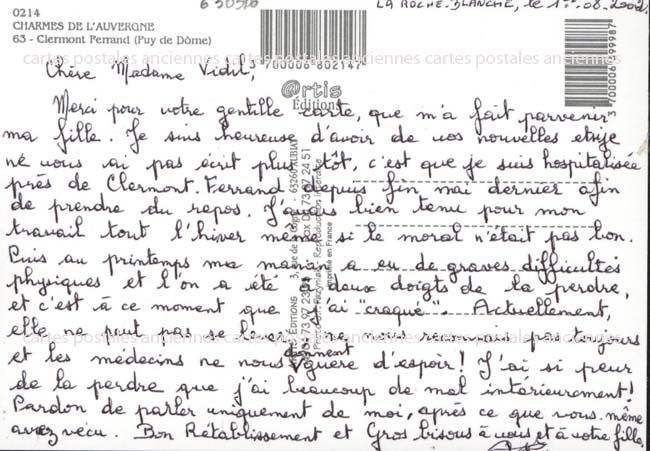 0214
CHARMES DE L'AUVERGNE
63 - Clermont Ferrand (Puy de Dôme)
LA ROCHE-BLANCHE, le 1er-08-2002
cartes postales anciennes cartes postales anciennes cartes postales anciennes
3 700006 802147
@rtis
Éditions
3 700006 999987
Chère Madame Vidil,
Merci pour votre gentille carte, que m'a fait parvenir
ma fille. Je suis heureuse d'avoir de vos nouvelles et si je
ne vous ai pas écrit plus tôt, c'est que je suis hospitalisée
près de Clermont-Ferrand depuis fin mai dernier afin
de prendre du repos. J'avais bien tenu pour mon
travail tout l'hiver même si le moral n'était pas bon.
Puis au printemps ma maman a eu de graves difficultés
physiques et l'on a été à deux doigts de la perdre,
et c'est à ce moment que j'ai "craqué". Actuellement,
elle ne peut pas se lever, ne nous reconnait pas toujours
cartes postales anciennes cartes postales anciennes cartes postales anciennes
et les médecins ne nous donnent guère d'espoir! J'ai si peur
de la perdre que j'ai beaucoup de mal intérieurement!
Pardon de parler uniquement de moi, après ce que vous-même
avez vécu. Bon Rétablissement et Gros bisous à vous et à votre fille.